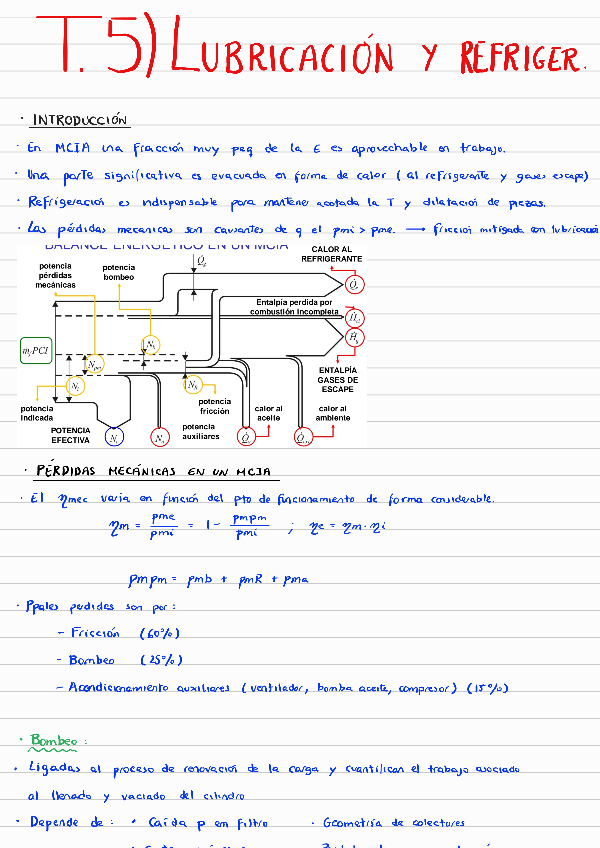 T.5) LUBRICACIÓN Y REFRIGER.
· INTRODUCCIÓN
· En MCIA una fracción muy peq de la E es aprovechable en trabajo.
· Una parte significativa es evacuada en forma de calor (al refrigerante y gases escape)
· Refrigeración es indispensable para mantener acotada la T y dilatación de piezas.
· Las pérdidas mecanicas son causantes de q el pmi > pme. → fricción mitigada con lubricación
BALANCE ENERGÉTICO EN UN MCIA
CALOR AL REFRIGERANTE
potencia pérdidas mecánicas
potencia bombeo
Entalpía perdida por combustión incompleta
ENTALPÍA GASES DE ESCAPE
potencia indicada
POTENCIA EFECTIVA
potencia auxiliares
potencia fricción
calor al aceite
calor al ambiente
· PÉRDIDAS MECÁNICAS EN UN MCIA
· El ηmec varia en función del pto de funcionamiento de forma considerable.
ηm = pme/pmi = 1 - pmpm/pmi ; ηe = ηm · ηi
pmpm = pmb + pmR + pma
· Ppales perdidas son por:
- Fricción (60%)
- Bombeo (25%)
- Acondicionamiento auxiliares (ventilador, bomba aceite, compresor) (15%)
· Bombeo:
· Ligadas al proceso de renovación de la carga y cuantifican el trabajo asociado
al llenado y vaciado del cilindro
· Depende de: · Caída p en filtro · Geometría de colectures